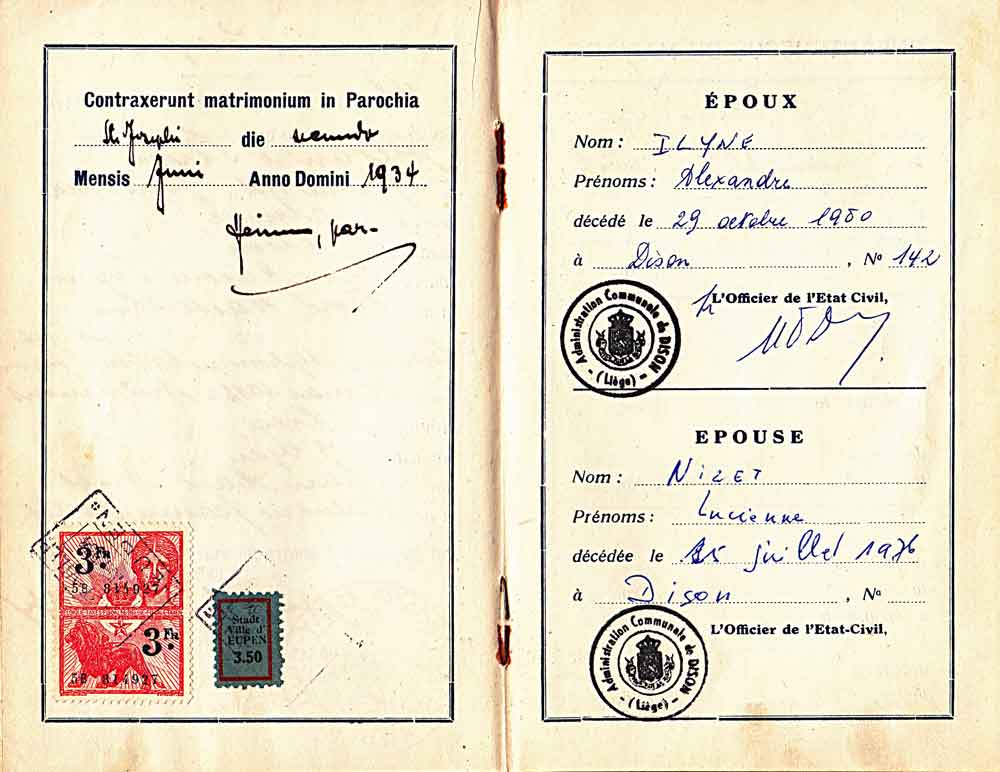 Contraxerunt matrimonium in Parochia
St. Josephi die secundo
Mensis Juni Anno Domini 1934
par-
3 Fr.
58 814927
3 Fr.
58 814927
Stadt
Ville d'
EUPEN
3.50
ÉPOUX
Nom : ILYNE
Prénoms : Alexandre
décédé le 29 octobre 1980
à Dison , No 142
L'Officier de l'Etat Civil,
Administration Communale de DISON
- (Liège) -
EPOUSE
Nom : Nizet
Prénoms : Lucienne
décédée le 25 juillet 1976
à Dison , No
L'Officier de l'Etat-Civil,
Administration Communale de DISON
- (Liège) -